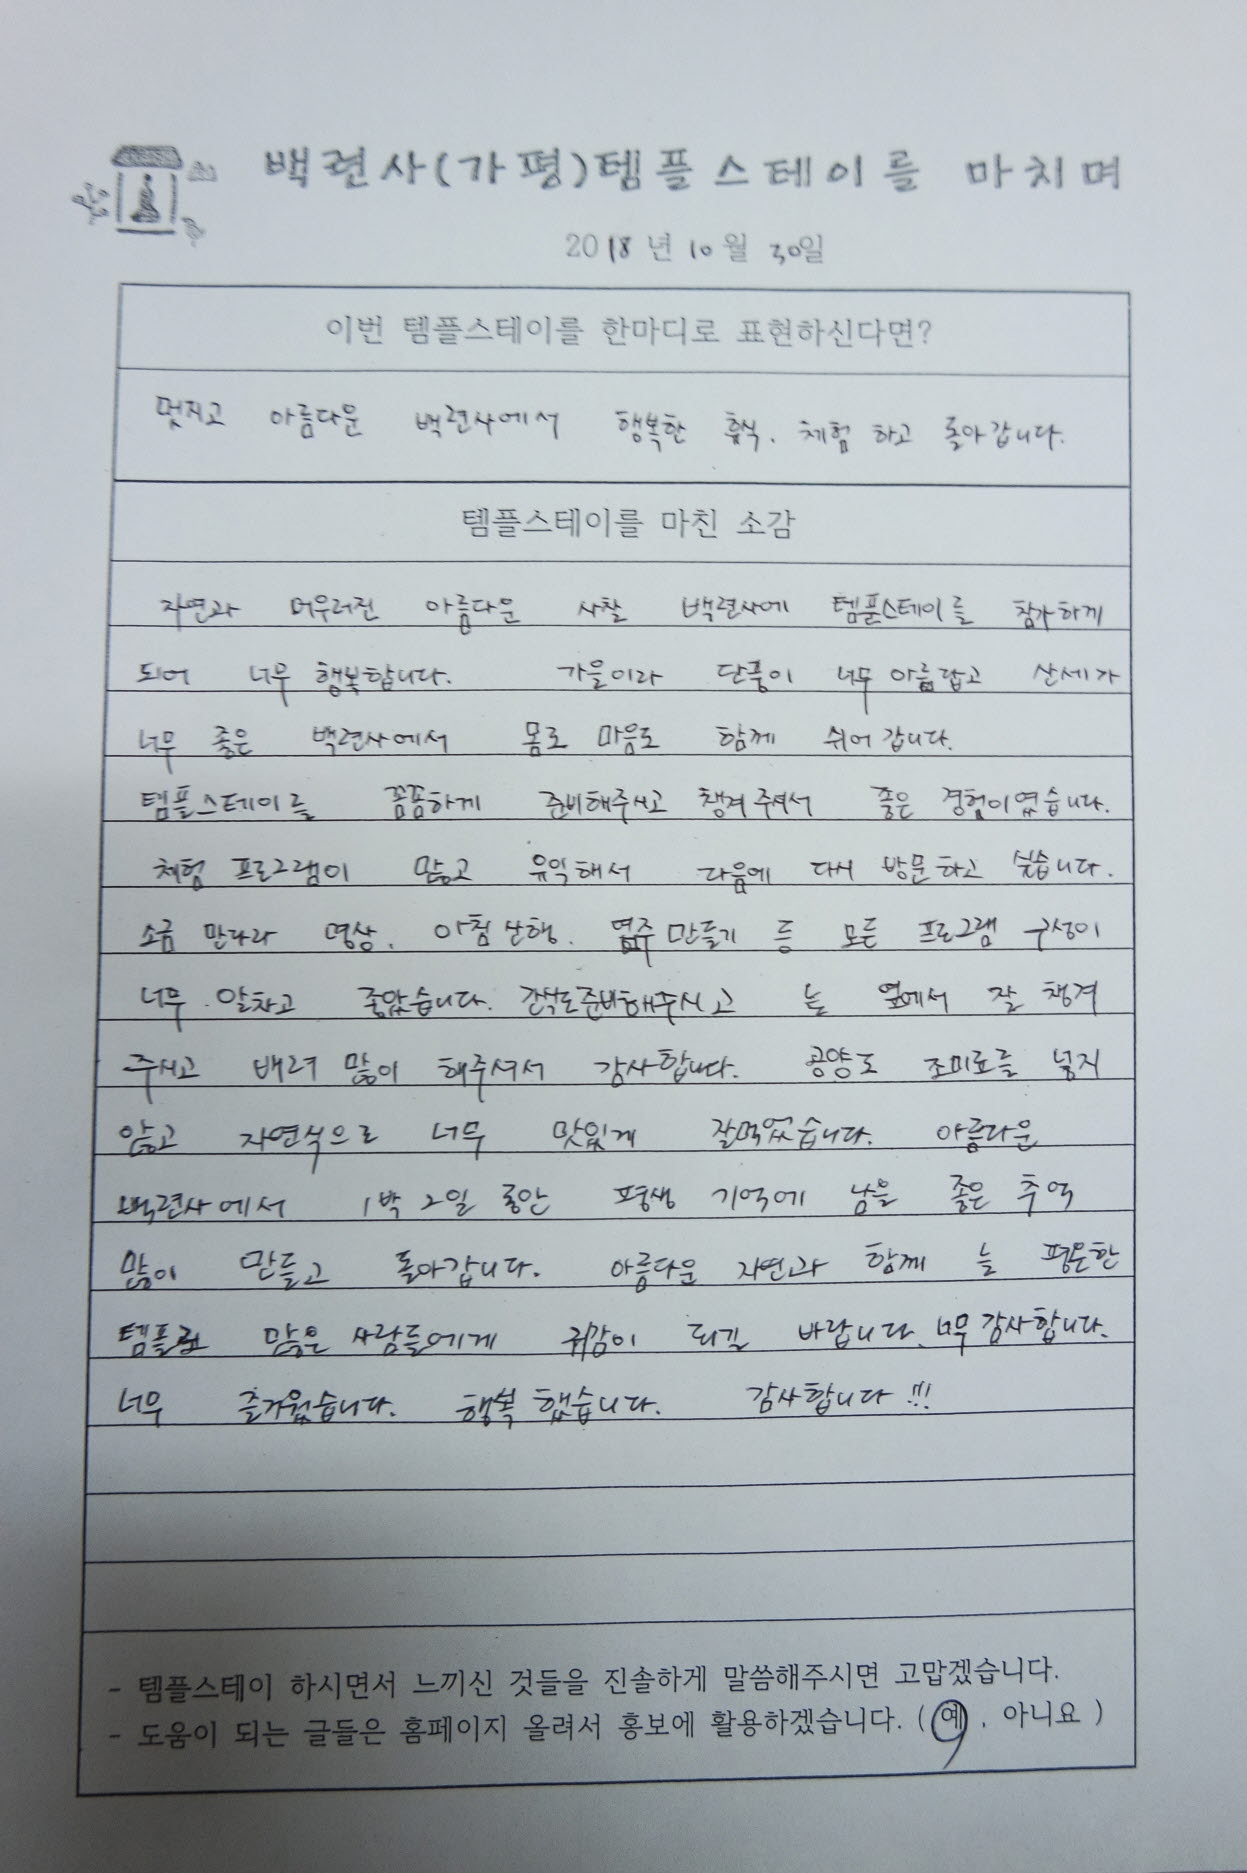 백련사(가평)템플스테이를 마치며
2018년 10월 30일
이번 템플스테이를 한마디로 표현하신다면?
멋지고 아름다운 백련사에서 행복한 휴식, 체험 하고 돌아갑니다.
템플스테이를 마친 소감
자연과 어우러진 아름다운 사찰 백련사에 템플스테이를 참가하게
되어 너무 행복합니다. 가을이라 단풍이 너무 아름답고 산세가
너무 좋은 백련사에서 몸도 마음도 함께 쉬어 갑니다.
템플스테이를 꼼꼼하게 준비해주시고 챙겨주셔서 좋은 경험이였습니다.
체험 프로그램이 많고 유익해서 다음에 다시 방문하고 싶습니다.
소금 만다라 명상, 아침 산행, 염주 만들기 등 모든 프로그램 구성이
너무 알차고 좋았습니다. 간식도 준비해주시고 늘 옆에서 잘 챙겨
주시고 배려 많이 해주셔서 감사합니다. 공양도 조미료를 넣지
않고 자연식으로 너무 맛있게 잘먹었습니다. 아름다운
백련사에서 1박 2일 동안 평생 기억에 남을 좋은 추억
많이 만들고 돌아갑니다. 아름다운 자연과 함께 늘 평온한
템플로 많은 사람들에게 귀감이 되길 바랍니다. 너무 감사합니다.
너무 즐거웠습니다. 행복했습니다. 감사합니다!!!
- 템플스테이 하시면서 느끼신 것들을 진솔하게 말씀해주시면 고맙겠습니다.
- 도움이 되는 글들은 홈페이지 올려서 홍보에 활용하겠습니다. (예, 아니요)